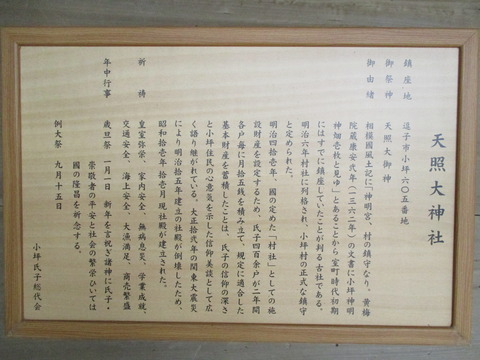 天照大神社
鎮座地　逗子市小坪六〇五番地
御祭神　天照大御神
御由緒　相模國風土記に「神明宮、村の鎮守なり、黄梅
院蔵康安弐年（一三六二年）の文書に小坪神明
神畑壱枚と見ゆ」とあることから室町時代初期
にはすでに鎮座していたことが判る古社である。
明治六年村社に列格され、小坪村の正式な鎮守
と定められた。
明治四拾壱年、國の定めた「村社」としての施
設財産を設定するため、氏子四百余戸が二年間
各戸毎に月拾五銭を積み立て、規定に適合した
基本財産を蓄積したことは、氏子の信仰の深さ
と小坪住民の心意気を示した信仰美談として広
く語り継がれている。大正拾弐年の関東大震災
により明治拾五年建立の社殿が倒壊したため、
昭和拾壱年拾壱月現社殿が建立された。
祈祷　皇室弥栄、家内安全、無病息災、学業成就、
交通安全、海上安全、大漁満足、商売繁盛
年中行事　歳旦祭　一月一日　新年を言祝ぎ諸神に氏子・
崇敬者の平安と社会の繁栄ひいては
國の隆昌を祈念する。
例大祭　九月十五日
小坪氏子総代会